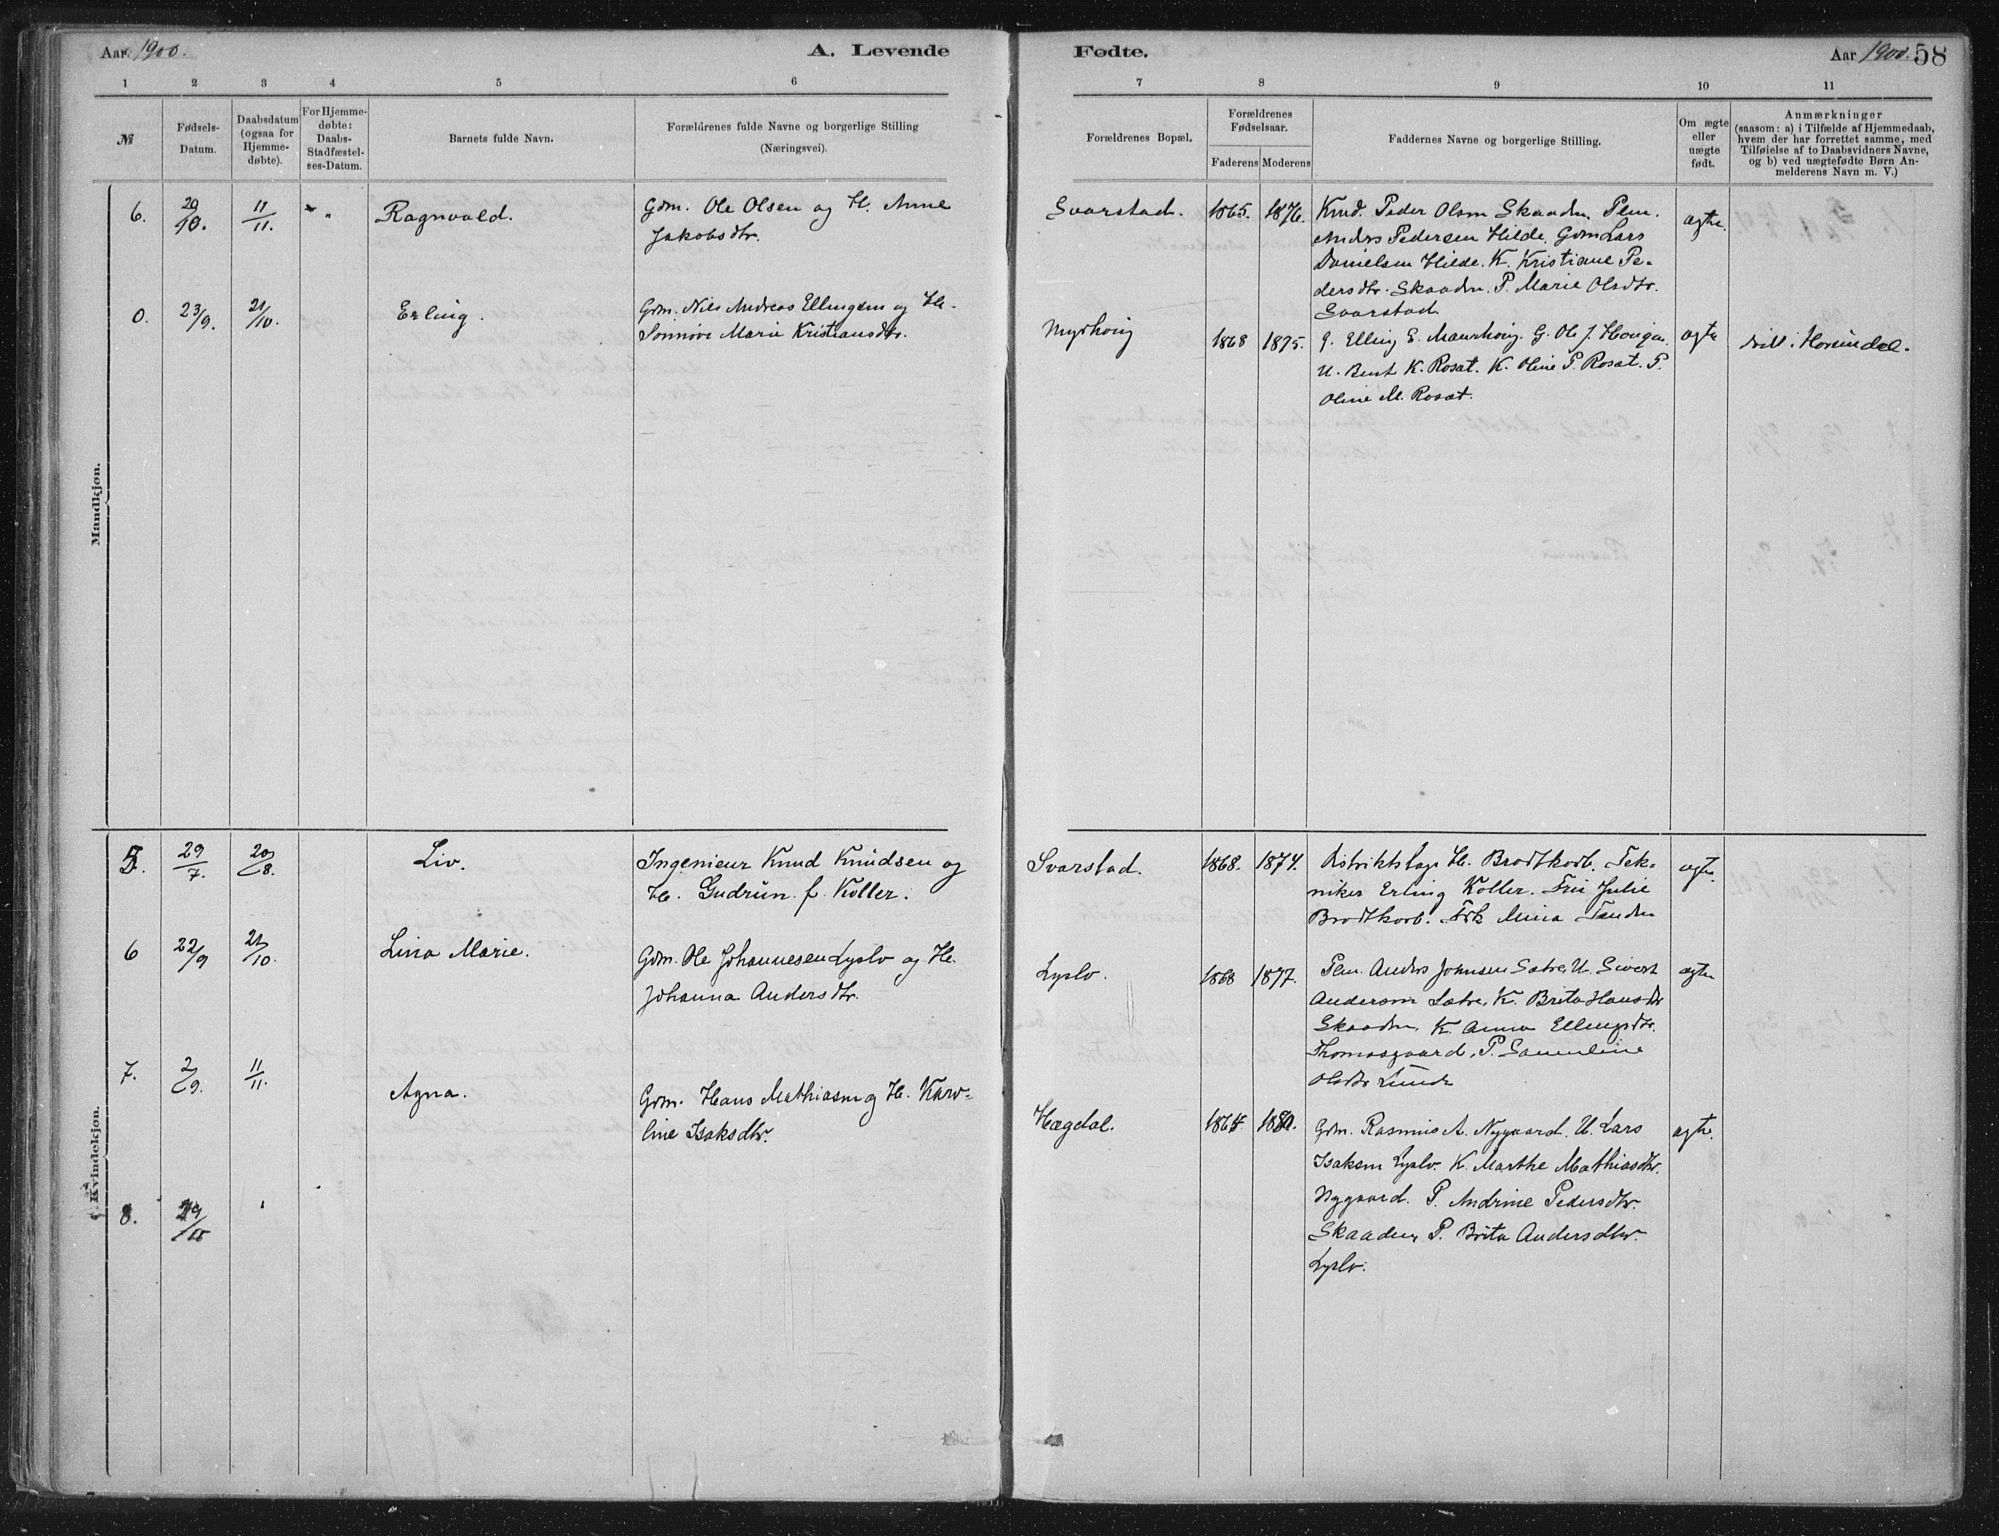 Aar 1900.
A. Levende
1 2 3 4 5 6
№
Fødsels-
Datum.
Daabsdatum
(ogsaa for
Hjemme-
døbte).
For Hjemme-
døbte:
Daabs-
Stadfæstel-
ses-Datum.
Barnets fulde Navn.
Forældrenes fulde Navne og borgerlige Stilling
(Næringsvei).
Mandkjøn.
6. 29/10. 11/11. " Ragnvald. Gdm. Ole Olsen og H. Anne
Jakobsdtr.
0. 23/9. 21/10. Erling. Gdm. Nils Andreas Ellingsen og H.
Sonnove Marie Kristiansdtr.
Kvindekjøn.
5. 29/7. 20/8. Liv. Ingenieur Knud Knudsen og
H. Gudrun f. Koller.
6 22/9 21/10. Lina Marie. Gdm. Ole Johannesen Lyslo og H.
Johanna Andersdtr.
7. 2/9. 11/11. Agna. Gdm. Hans Mathiasen og H. Karo-
line Isaksdtr.
8.
Fødte.
Aar 1900. 58
7 8 9 10 11
Forældrenes Bopæl.
Forældrenes
Fødselsaar.
Faderens Moderens
Faddernes Navne og borgerlige Stilling.
Om ægte
eller
uægte
født.
Anmærkninger
(saasom: a) i Tilfælde af Hjemmedaab,
hvem der har forrettet samme, med
Tilføielse af to Daabsvidners Navne,
og b) ved uægtefødte Børn An-
melderens Navn m. V.)
Svarstad. 1865. 1876. Peder Olsen Skaaden. Pem.
Anders Pedersen Hilde. Gdm Lars
Danielsen Hilde. K. Kristiane Pe-
dersdtr. Skaaden. P. Marie Olsdtr.
Svarstad.
ægte.
Myrhoug 1868 1875. G. Elling E. G. Ole J. Hougen.
U. Bent K. Rosæt. K. Oline P. Rosæt. P.
Oline M. Rosæt.
ægte
i Horindal.
Svarstad. 1868. 1874. Distriktslæge H. Brodtkorb. Tek-
niker Erling Koller. Fru Julie
Brodtkorb. Frk Mina
ægte.
Lyslo. 1868 1877. Pem. Anders Johnsen Sætre, U. Sivert
Andersen Sætre, K. Brita Hansdtr
Skaaden, K. Anna Ellingsdtr.
Thomasgaard, P. Samueline
Olsdtr Lunde
ægte
Hægdal. 1864. 1880. Gdm. Rasmus A. Nygaard. U. Lars
Isaksen Lyslo. K. Marthe Mathiasdtr.
Nygaard. P. Andrine Pedersdtr.
Skaaden, P. Brita Andersdtr.
Lyslo.
ægte.